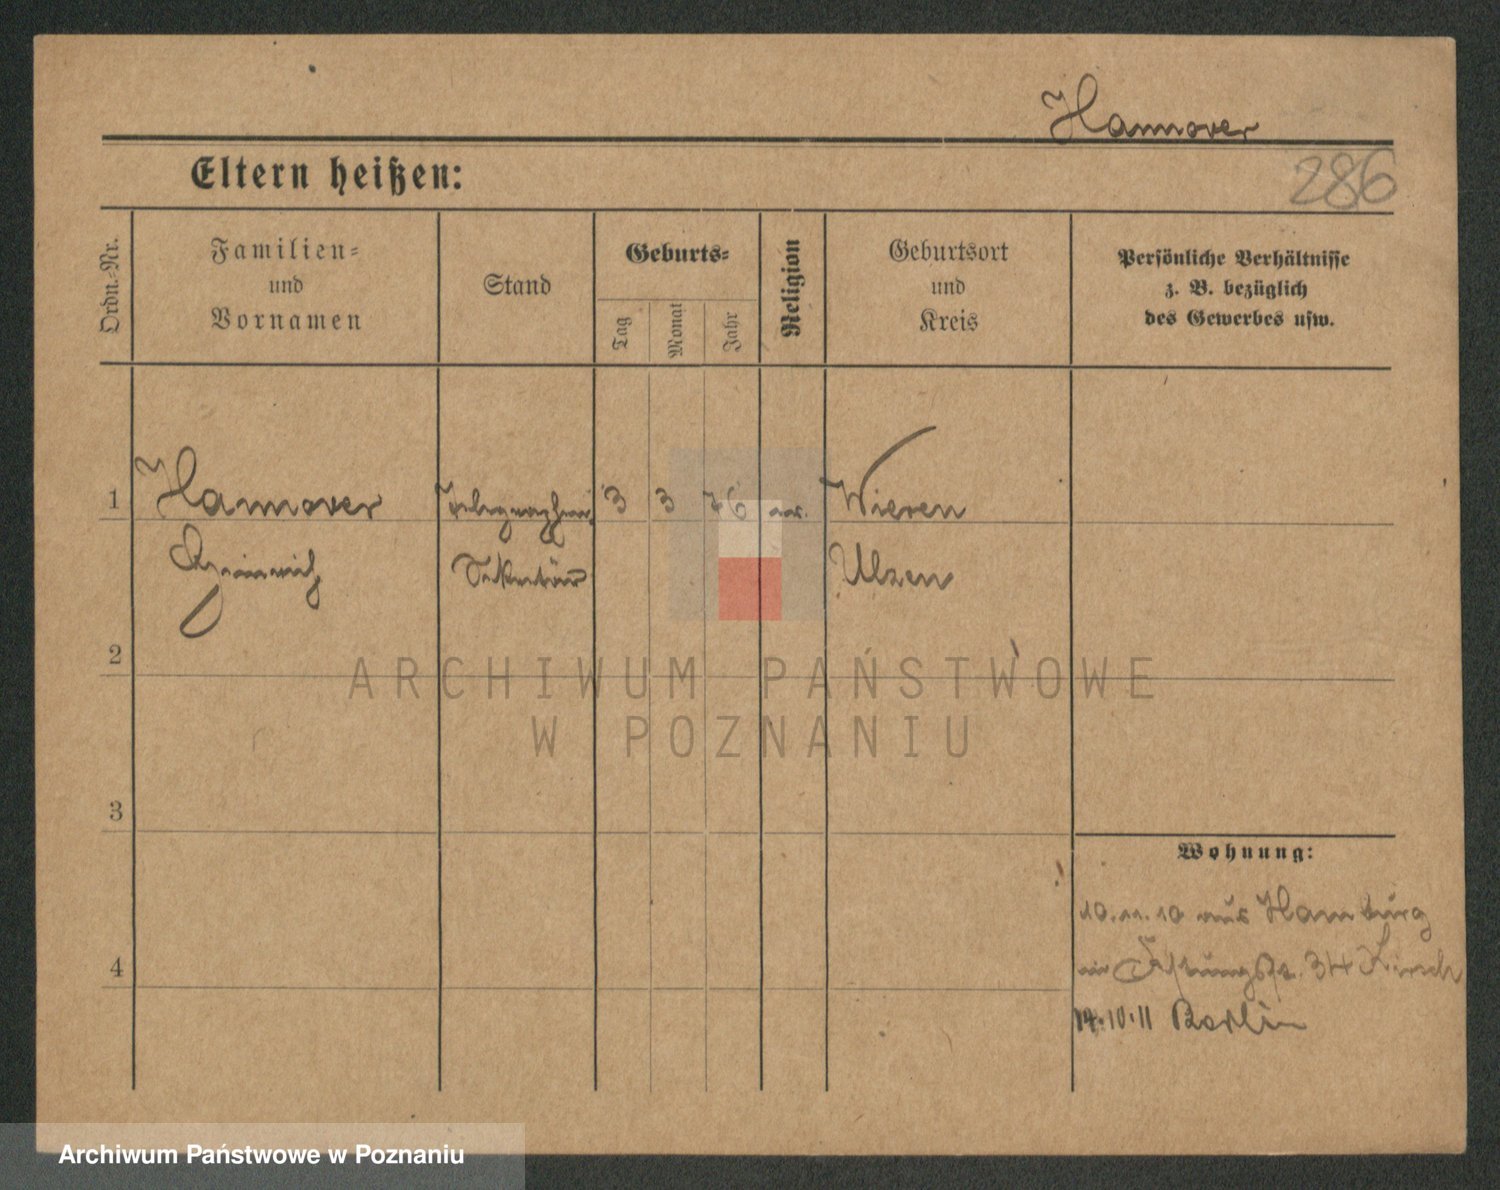 Hannover
286
Eltern heißen:
Ordn.-Nr.
Familien-
und
Vornamen
Stand
Geburts-
Tag
Monat
Jahr
Religion
Geburtsort
und
Kreis
Persönliche Verhältnisse
z. B. bezüglich
des Gewerbes usw.
1
Hannover
Heinrich
Telegraphen
Sekretär
3
3
76
Wieren
Ulzen
2
3
4
Wohnung:
10.11.10 aus Hamburg
34 Kirsch
14.10.11 Berlin
ARCHIWUM PAŃSTWOWE
W POZNANIU
Archiwum Państwowe w Poznaniu